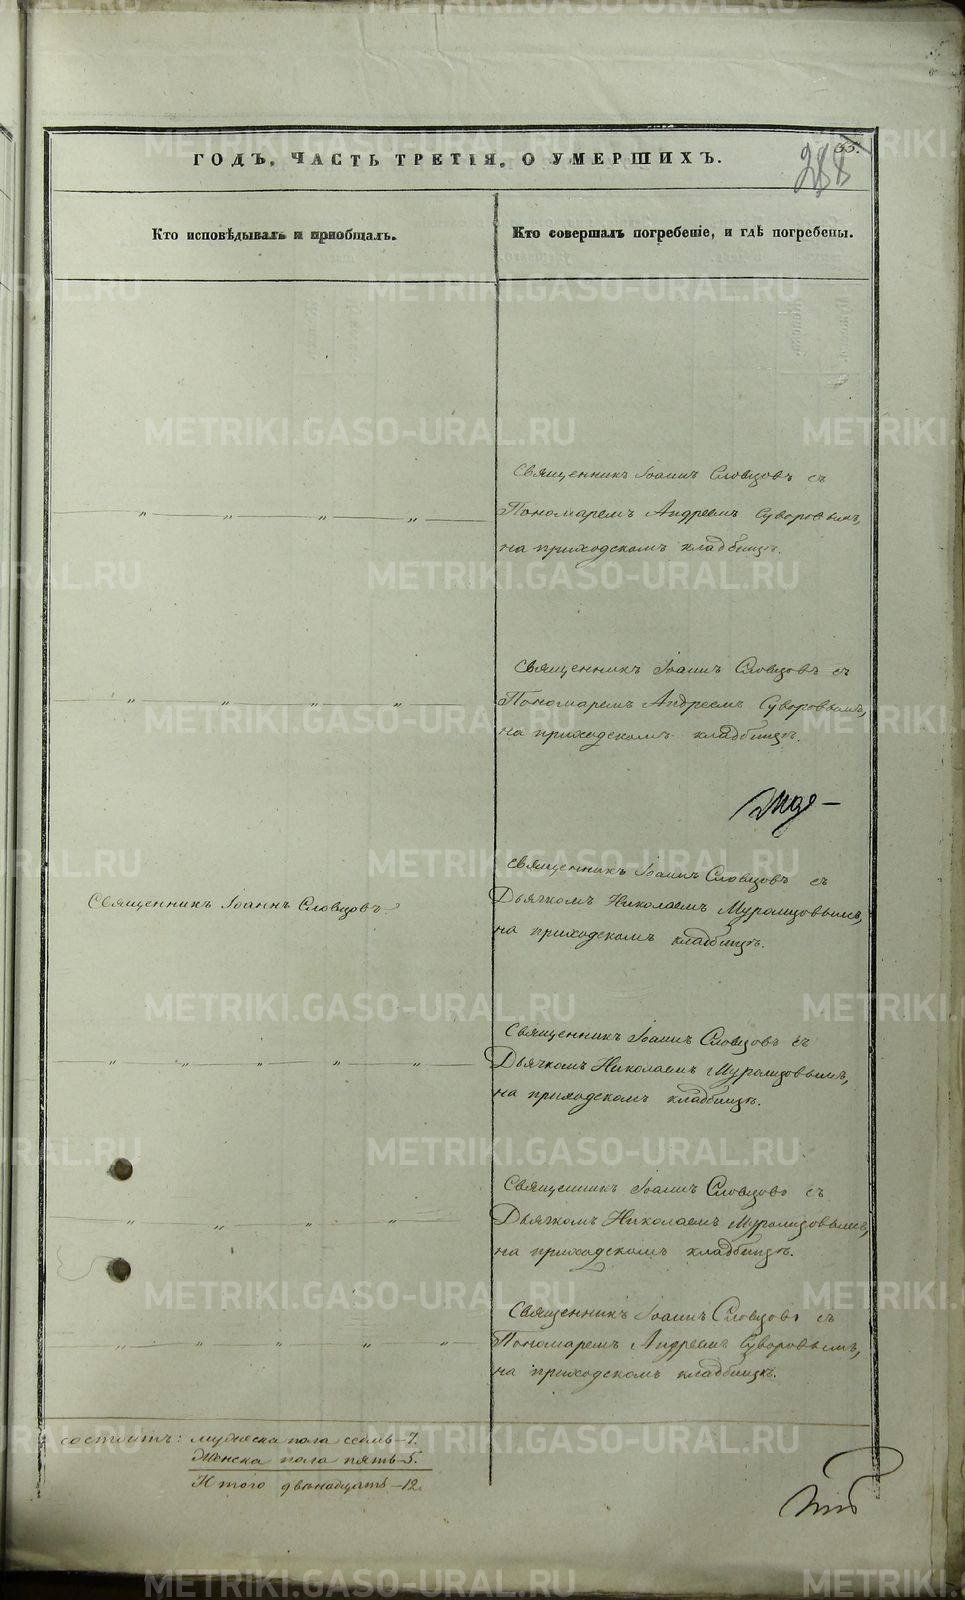 ГОДЪ. ЧАСТЬ ТРЕТІЯ, О УМЕРШИХЪ.
55.
288
Кто исповѣдывалъ и приобщалъ.
Кто совершалъ погребеніе, и гдѣ погребены.
Священникъ Іоаннъ Словцовъ съ
— „ — „ — „ — „ —
Пономаремъ Андреемъ Суворовымъ,
на приходскомъ кладбищѣ.
Священникъ Іоаннъ Словцовъ съ
— „ — „ — „ — „ —
Пономаремъ Андреемъ Суворовымъ,
на приходскомъ кладбищѣ.
Священникъ Іоаннъ Словцовъ
Священникъ Іоаннъ Словцовъ съ
Дьячкомъ Николаемъ Муромцовымъ,
на приходскомъ кладбищѣ.
Священникъ Іоаннъ Словцовъ съ
— „ — „ — „ — „ — „ —
Дьячкомъ Николаемъ Муромцовымъ,
на приходскомъ кладбищѣ.
Священникъ Іоаннъ Словцовъ съ
— „ — „ — „ — „ —
Дьячкомъ Николаемъ Муромцовымъ,
на приходскомъ кладбищѣ.
Священникъ Іоаннъ Словцовъ съ
— „ — „ — „ — „ — „
Пономаремъ Андреемъ Суворовымъ,
на приходскомъ кладбищѣ.
состоитъ: мужеска пола семь—7.
Женска пола пять—5.
Итого двѣнадцать—12.
METRIKI.GASO-URAL.RU